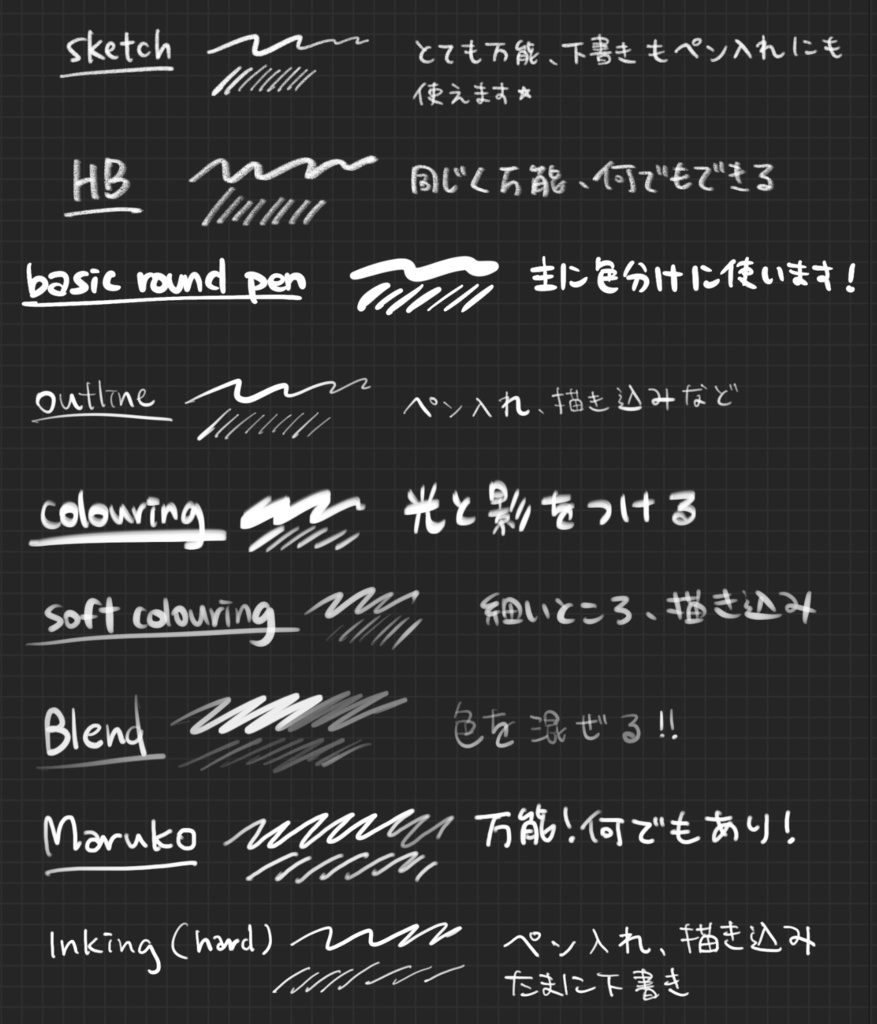 sketch とても万能、下書きもペン入れにも
使えます★
HB 同じく万能、何でもできる
basic round pen 主に色分けに使います!
outline ペン入れ、描き込みなど
colouring 光と影をつける
soft colouring 細いところ、描き込み
Blend 色を混ぜる!!
Maruko 万能!何でもあり!
Inking (hard) ペン入れ、描き込み
たまに下書き